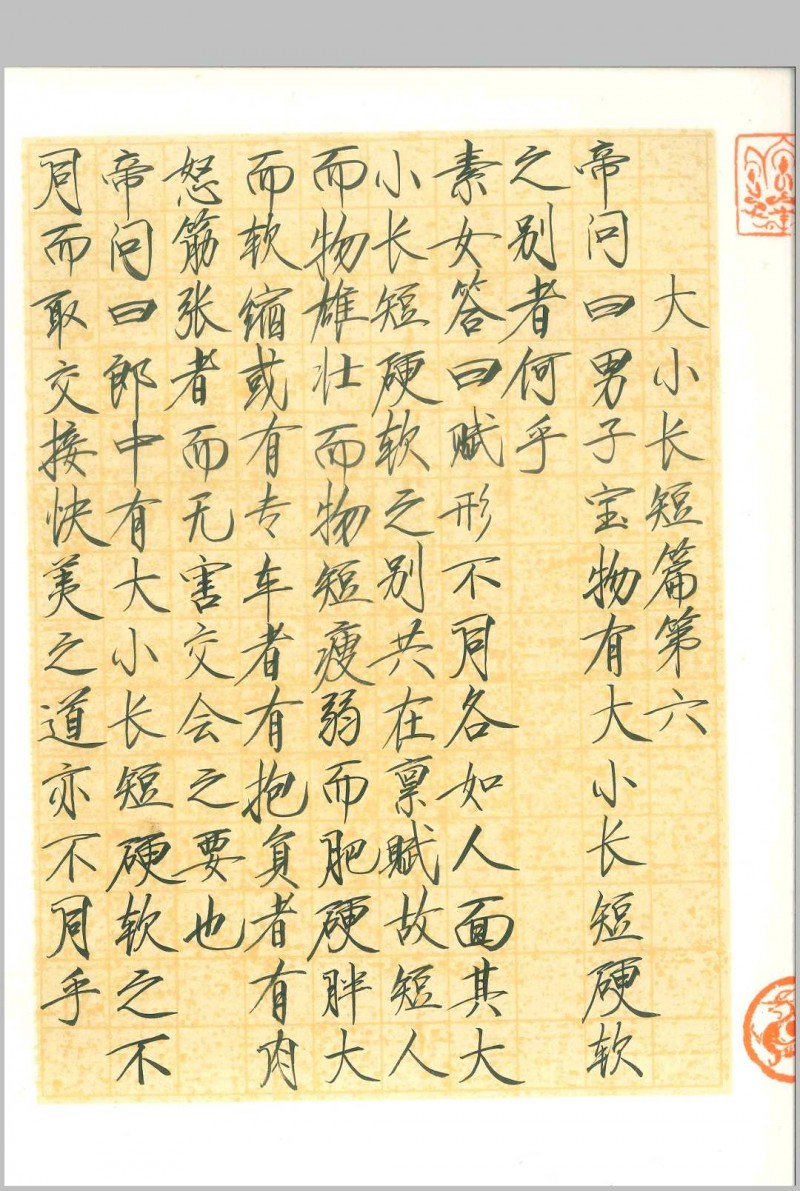 大小长短篇第六
帝问曰男子宝物有大小长短硬软
之别者何乎
素女答曰赋形不同各如人面其大
小长短硬软之别共在禀赋故短人
而物雄壮而物短瘦弱而肥硬胖大
而软缩或有专车者有抱负者有肉
怒筋张者而无害交会之要也
帝问曰郎中有大小长短硬软之不
同而取交接快美之道亦不同乎